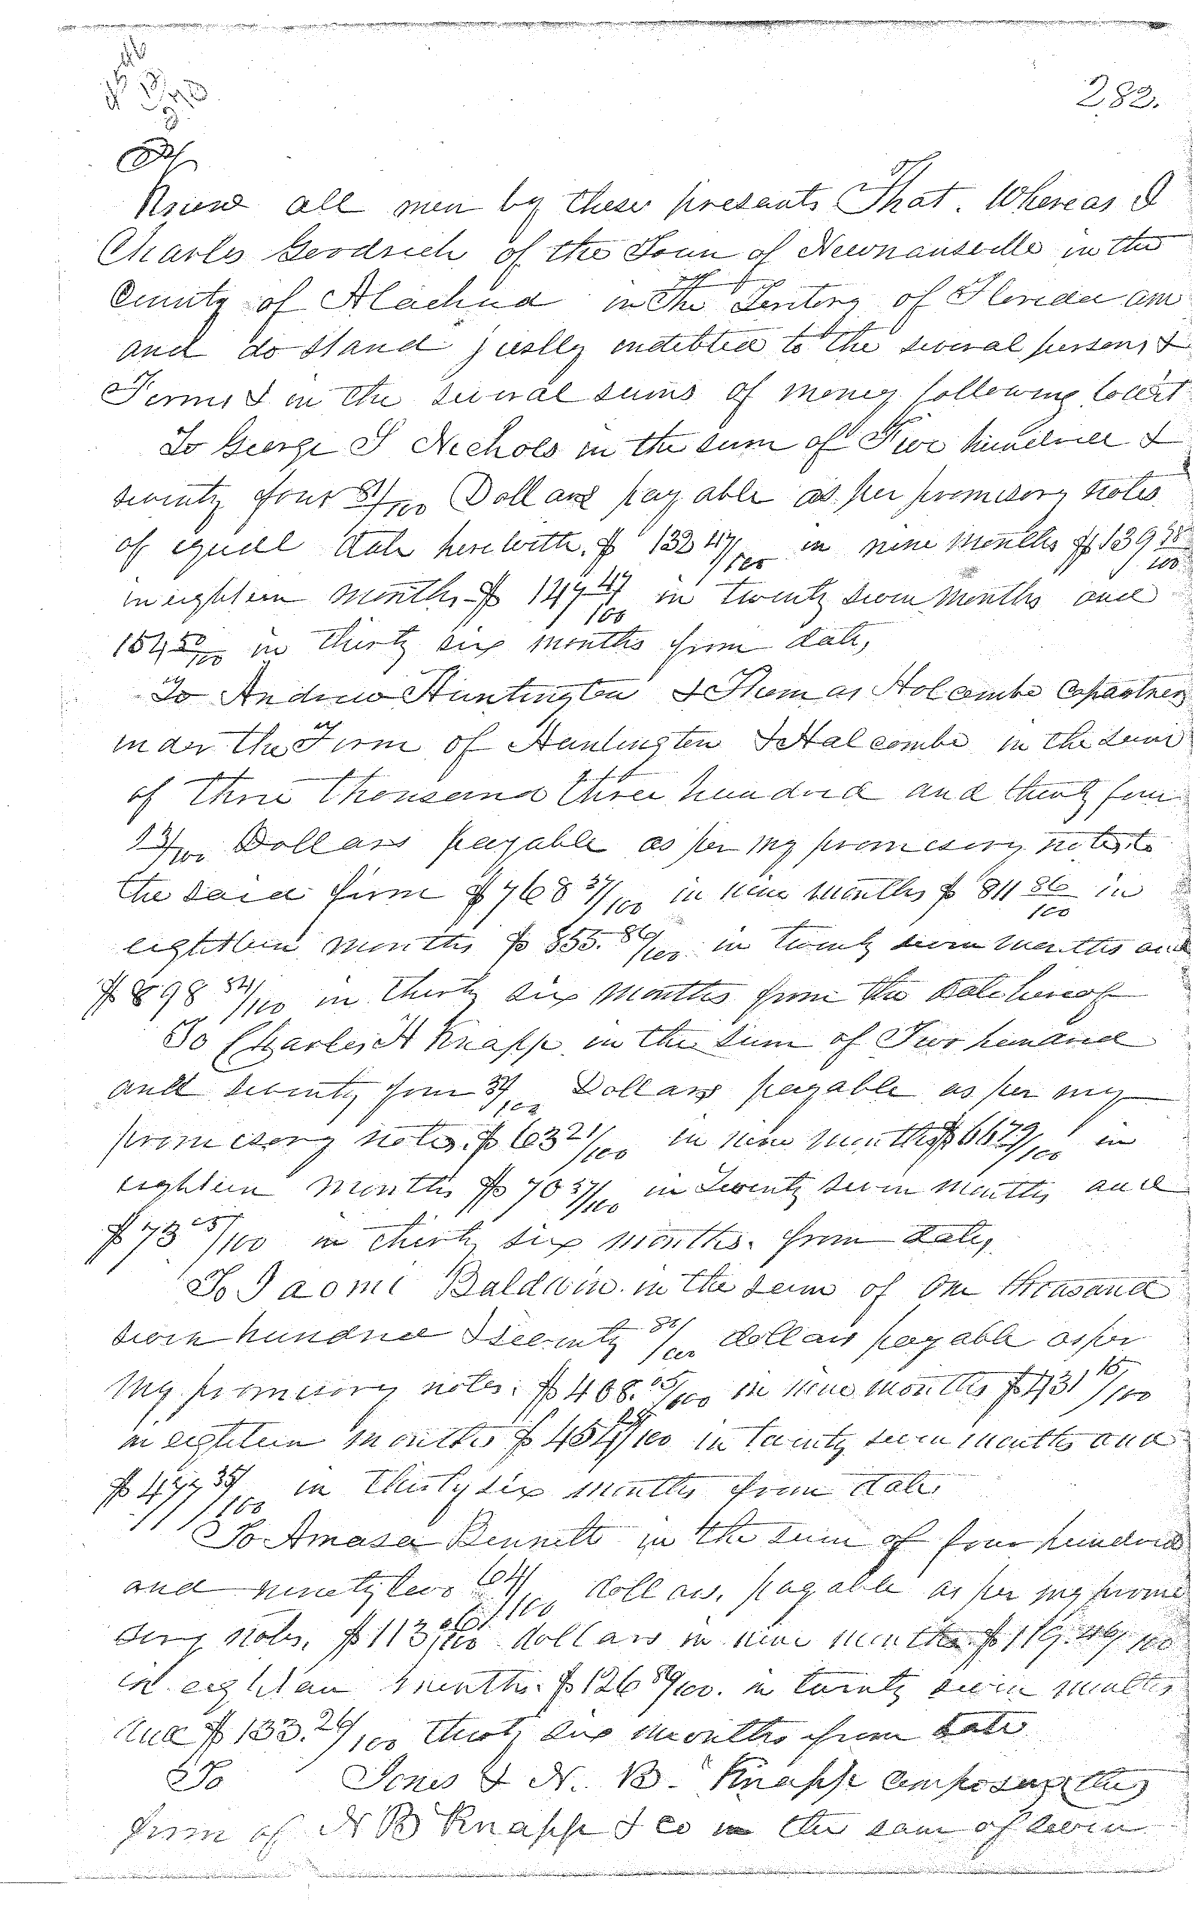 282.
Know all men by these presants That. Whereas I
Charles Goodrich of the Town of Newnansville in the
County of Alachua in The Teritory of Florida am
and do stand justly indebted to the several persons &
Ferms & in the several sums of money following towit
To George S Nichols in the sum of Five hundred &
seventy four 81/100 Dollars payable as per promisory notes
of equall date herewith. $ 132 47/100 in nine months $139 98/100
in eighteen months $ 147 47/100 in twenty seven months and
154 50/100 in thirty six months from date,
To Andrew Huntington & Thomas Holcombe Copartners
under the Firm of Huntington & Halcombe in the sum
of three thousand three hundred and thirty four
13/100 Dollars payable as per my promissory notes to
the said firm $ 768 37/100 in nine months $ 811 86/100 in
eighteen months $ 855. 86/100 in twenty seven months and
$ 898 54/100 in thirty six months from the date hereof
To Charles H Knapp in the sum of Two hundred
and seventy four 34/100 Dollars payable as per my
promissory notes. $ 63 21/100 in nine months $66 79/100 in
eighteen months $ 70 37/100 in Twenty seven months and
$ 73 65/100 in thirty six months. from date,
To Baldwin in the sum of One thousand
seven hundred & seventy 82/100 dollars payable as per
my promissory notes. $ 408. 05/100 in nine months $ 431 15/100
in eighteen months $ 454 /100 in twenty seven months and
$ 477 35/100 in thirty six months from date.
To Amasa Bennett in the sum of four hundred
and ninety two 64/100 dollars, payable as per my promi
sory notes. $ 113 06/100 dollars in nine months $ 119. 46/100
in eighteen months. $ 126 86/100. in twenty seven months
and $ 133. 26/100 thirty six months from date
To Jones & N. B. Knapp composing the
firm of N B Knapp & Co in the sum of seven